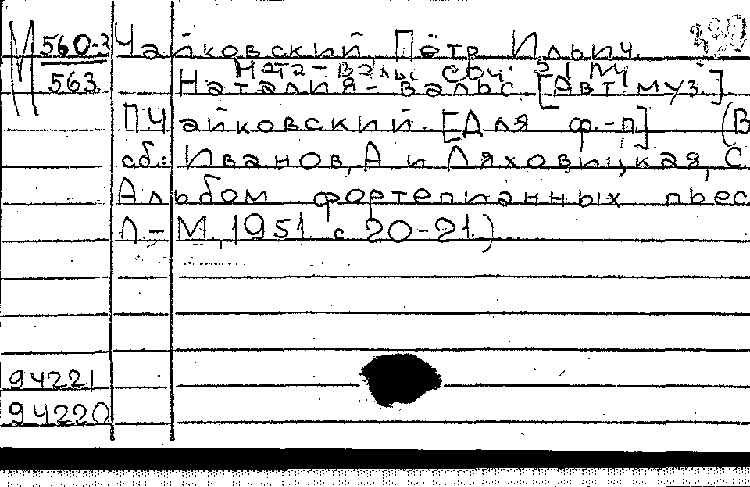 М 560-3 Чайковский, Пётр Ильич.
563
Ната-Вальс соч. 51 №4
Наталия-вальс. [Авт. муз.]
П. Чайковский. [Для ф.-п.] (В
сб.: Иванов, А и Ляховицкая, С
Альбом фортепианных пьес
Л-М, 1951 с 20-21)
94221
94220